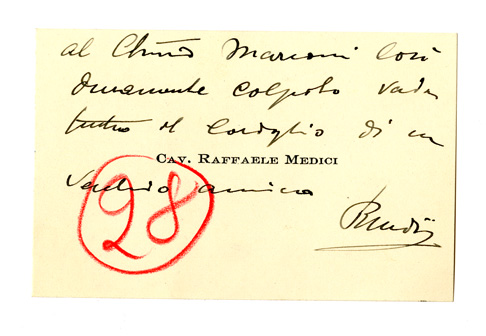 al Ch.mo Marconi così
duramente colpito vada
tutto il cordoglio di un
CAV. RAFFAELE MEDICI
vecchio amico
RMedici
98